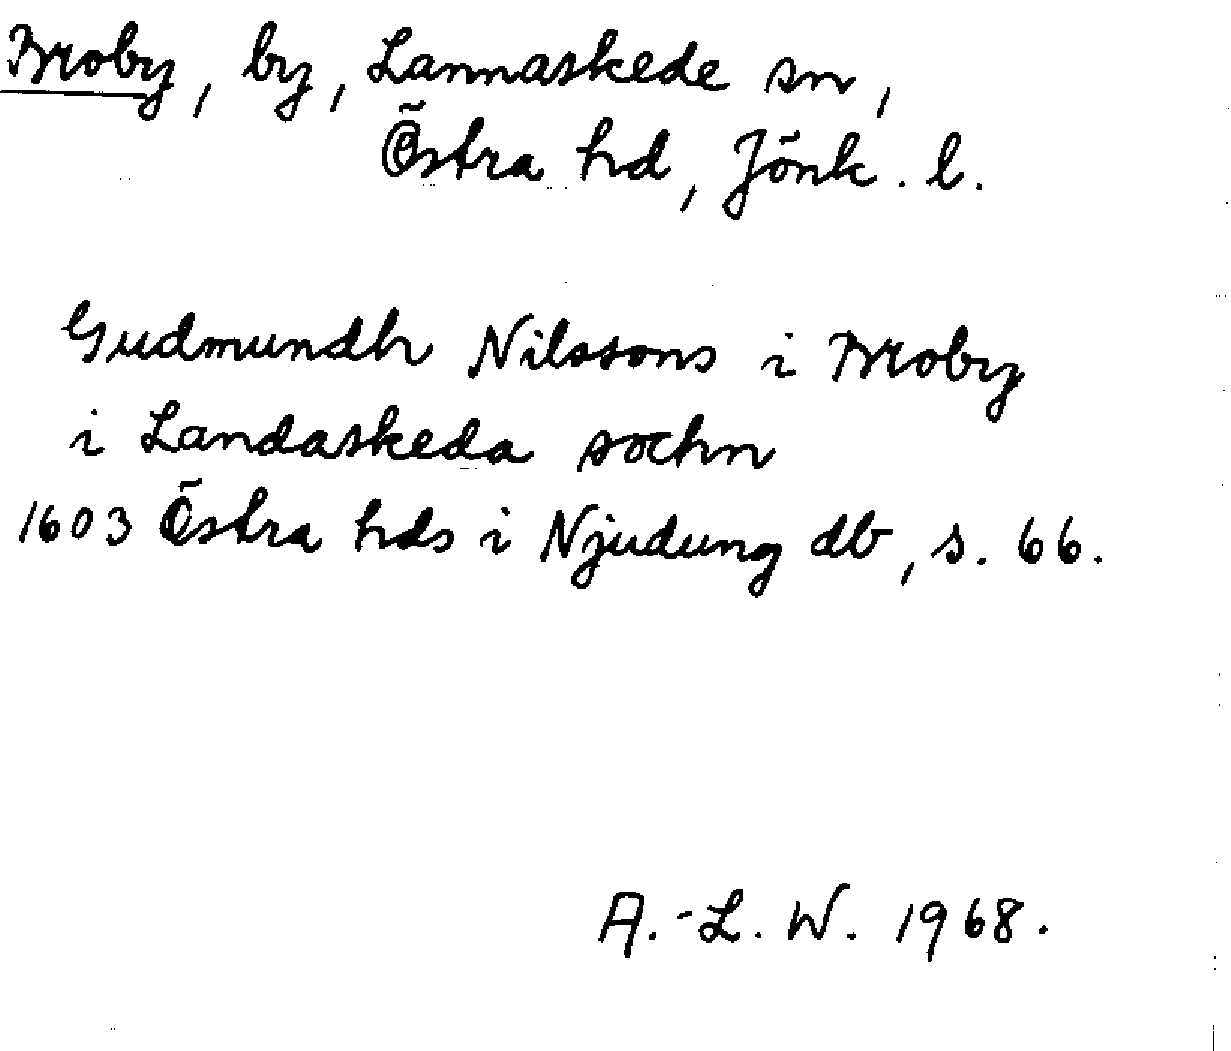 Broby, by, Lannaskede sn,
Östra hd, Jönk. l.
Gudmundh Nilssons i Broby
i Landaskeda sochn
1603 Östra hds i Njudung db, s. 66.
A.-L. W. 1968.